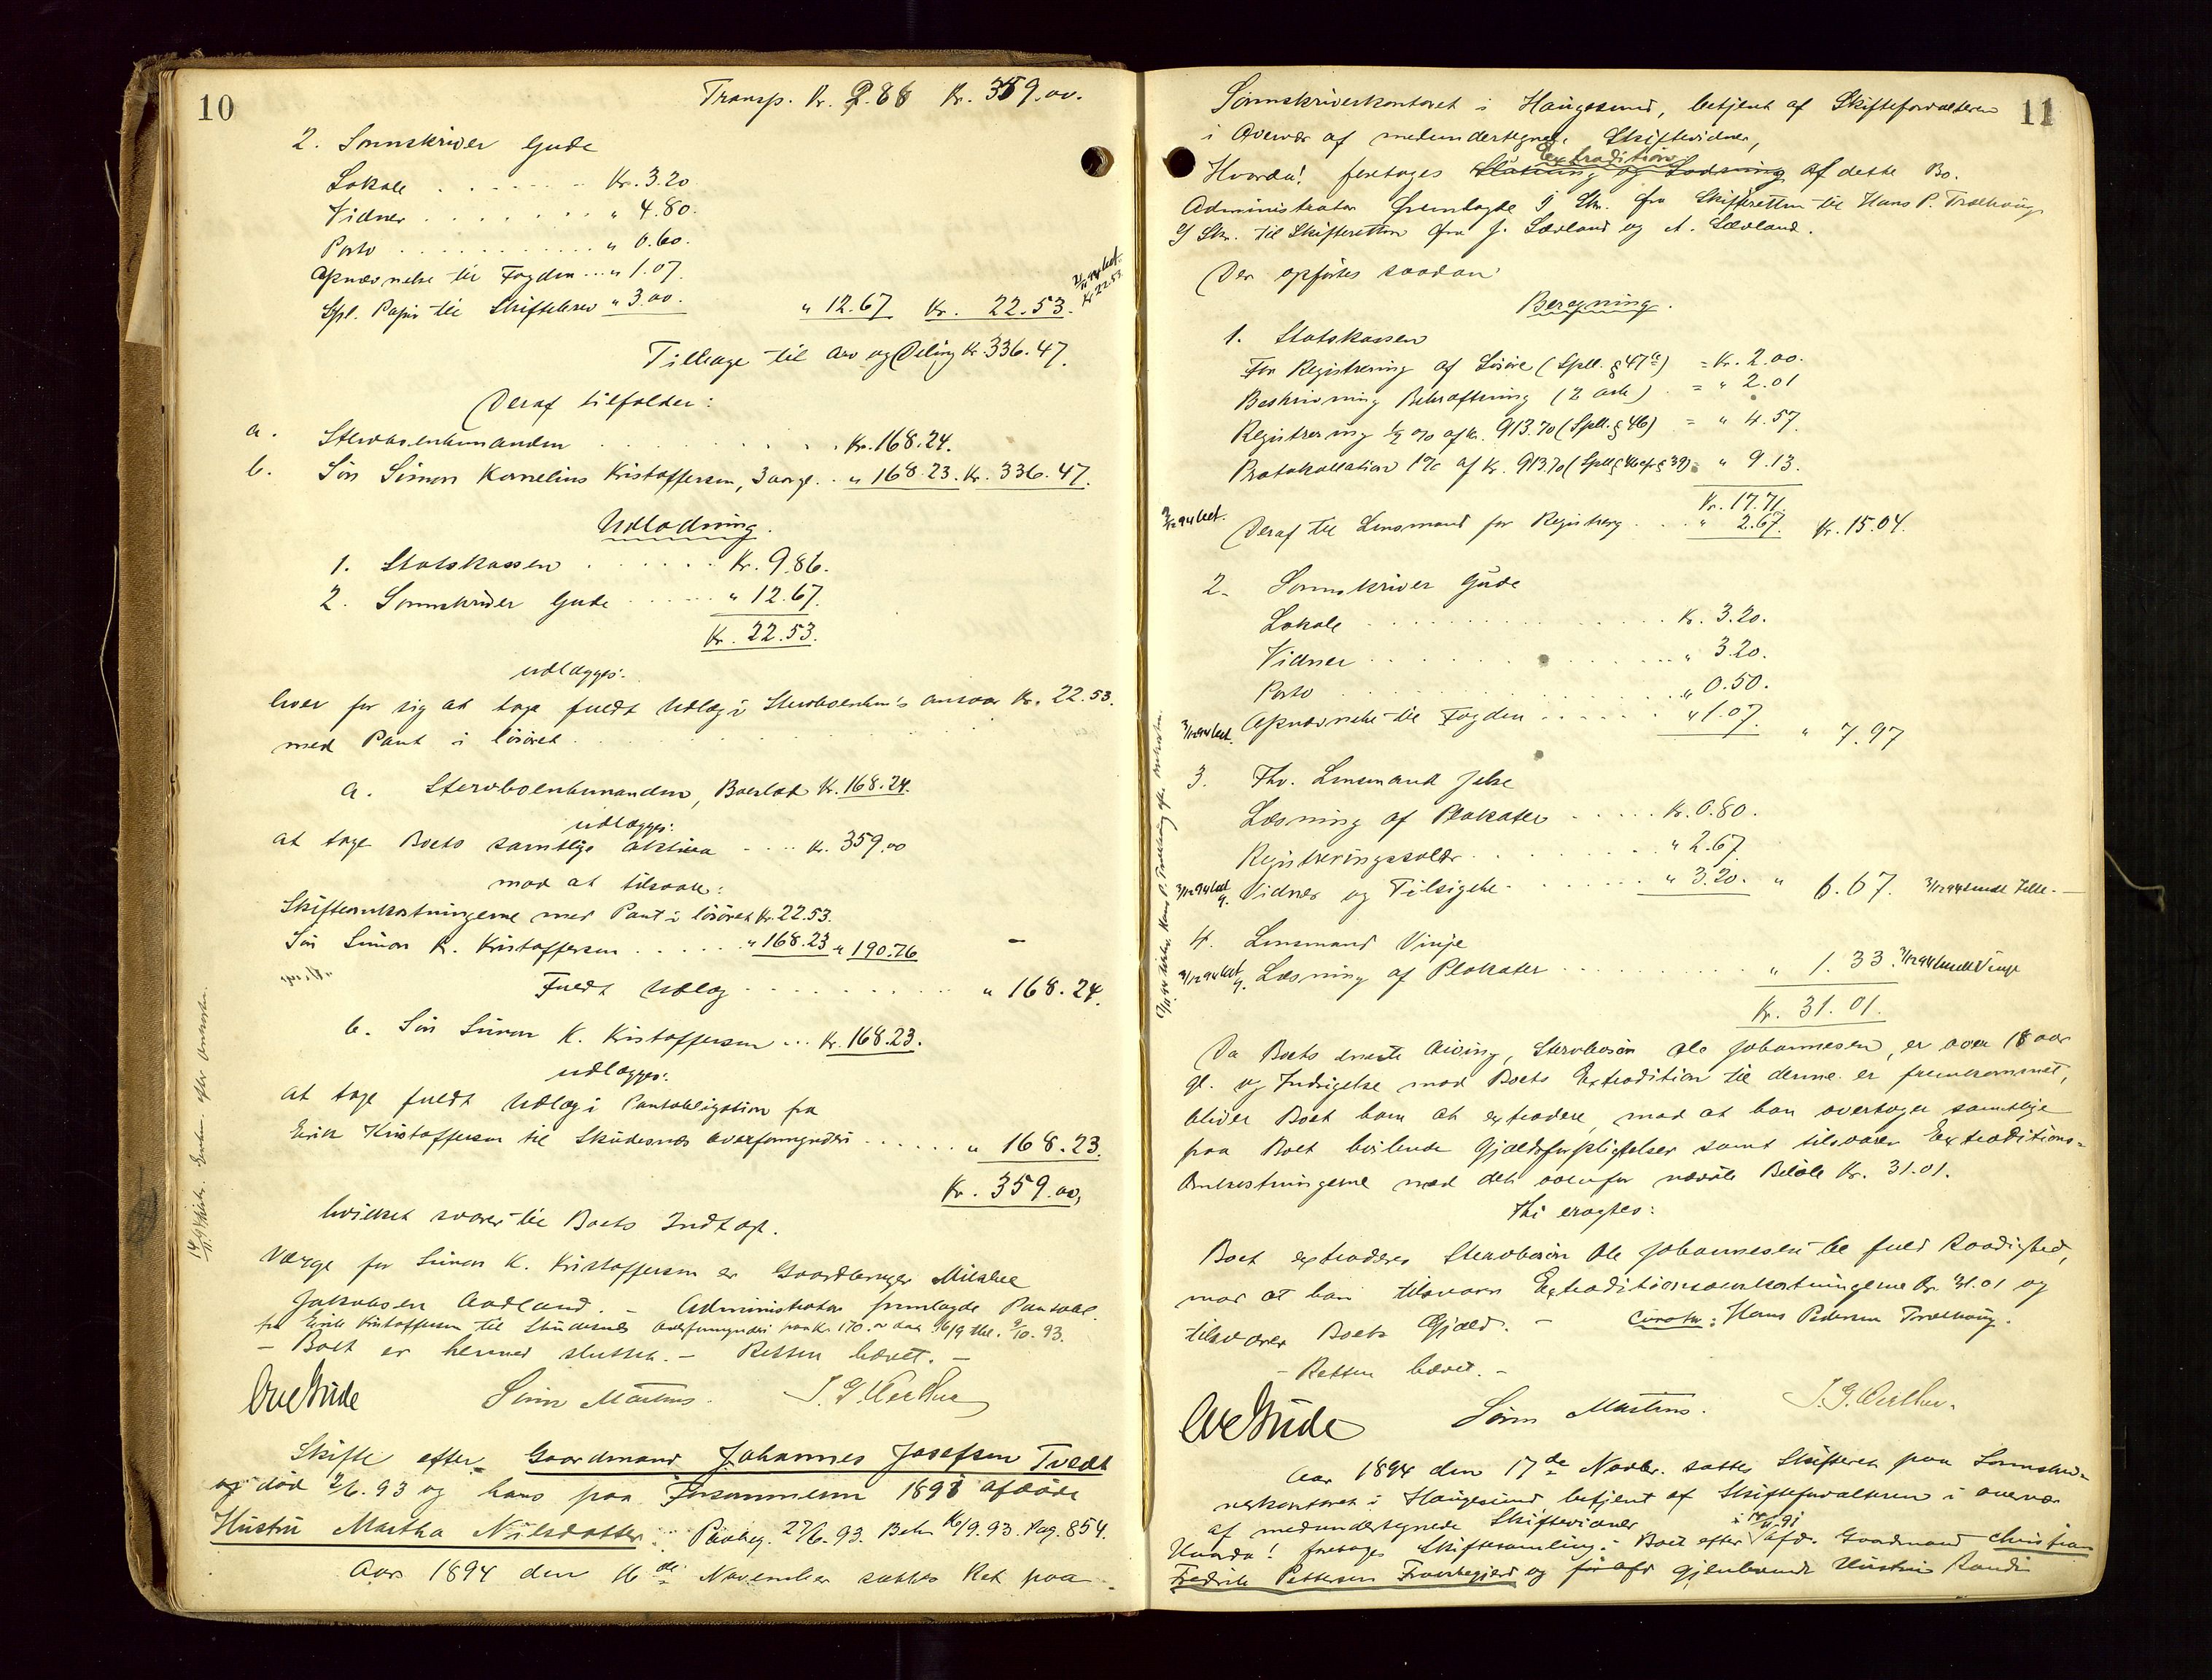 10
Transp. Kr. 9.86 Kr. 359.00.
2. Sorenskriver Gude
Lokale . . . . . . . Kr. 3.20
Vidner . . . . . . . " 4.80.
Porto . . . . . . . " 0.60.
Opnævnelse til Fogden . . . " 1.07.
Stpl. Papir til Skiftebrev " 3.00. " 12.67 Kr. 22.53.
Kr 22.53
Tilbage til Arv og Deling Kr. 336.47.
Deraf tilfalder:
a. Stervboenkemanden . . . . . Kr. 168.24.
b. Søn Simon Kornelius Kristoffersen, 3 aar gl. . " 168.23. Kr. 336.47.
Udlodning.
1. Statskassen . . . . . . Kr. 9.86.
2. Sorenskriver Gude . . . . . " 12.67.
Kr. 22.53.
udlægges:
hver for sig at tage fuldt Udlæg i Stervboenkem's ansvar Kr. 22.53.
med Pant i løsøret . . . .
a. Stervboenkemanden, Boeslod Kr. 168.24.
udlægges:
at tage Boets samtlige aktiva . . . . Kr. 359.00
mod at tilsvare:
Skifteomkostningerne med Pant i løsøret Kr. 22.53.
Søn Simon K. Kristoffersen . . . . . " 168.23 " 190.76
Fuldt Udlæg . . . . . . . . " 168.24.
b. Søn Simon K. Kristoffersen . . . Kr. 168.23.
udlægges:
at tage fuldt Udlæg i Pantobligation fra
Eirik Kristoffersen til Skudesnes Overformynderi . . . . . . " 168.23.
Kr. 359.00,
hvilket svarer til Boets Indtægt.
Værge for Simon K. Kristoffersen er Gaardbruger Mikkel
Jakobsen Aadland. – Administrator fremlagde Pantobl.
fra Eirik Kristoffersen til Skudesnes Overformynderi paa Kr. 170.00 dat. 16/9 thl. 9/10. 93.
– Boet er hermed sluttet. – Retten hævet. –
Ove Gude Sørin Martens. J. G. Oerther
Skifte efter Gaardmand Johannes Josefsen Tvedt
og død 2/6. 93 og hans paa Forsommeren 1893 afdøde
Hustru Martha Nilsdatter: Paabeg. 27/6. 93. Beh. 16/9. 93. Pag. 854.
Aar 1894 den 16de November sattes Ret paa
11
Sorenskriverkontoret i Haugesund, betjent af Skifteforvalteren
i Overvær af medundertegnede Skiftevidner,
Hvorda! foretages Slutning og Lodning extradition af dette Bo.
Administrator fremlagde 1) Skr. fra Skifteretten til Hans P. Troelhaug,
2) Skr. til Skifteretten fra J. Lædland og A. Lædland.
Der opføres saadan
Beregning.
1. Statskassen
For Registrering af Løsøre (Spll. § 47 a) = Kr. 2.00.
Beskrivning Bekræftning (2 ark) . = " 2.01
Registrering ½ % af Kr. 913.70 (Spll. § 46) = " 4.57.
Protokollation 1% af Kr. 913.70 (Spll § 46 cfr § 39) = " 9.13.
Kr. 17.71
Deraf til Lensmand for Registrering . . . " 2.67. Kr. 15.04.
2. Sorenskriver Gude
Lokale . . . . . . . . Kr. 3.20.
Vidner . . . . . . . . " 3.20.
Porto . . . . . . . . " 0.50.
Opnævnelse til Fogden . . . . . . " 1.07. " 7.97
3. Fhv. Lensmand Jelse
Læsning af Plakater . . . . . Kr. 0.80.
Registreringssalær . . . . . . " 2.67.
Vidner og Tilsigelse . . . . . . " 3.20. " 6.67.
4. Lensmand Vinje
Læsning af Plakater . . . . . . . . " 1.33.
Kr. 31.01.
Da Boets eneste Arving, Stervbosøn Ole Johannesen, er over 18 aar
gl. og Indsigelse mod Boets Extradition til denne er fremkommet,
bliver Boet ham at extradere, mod at han overtager samtlige
paa Boet hvilende Gjældsforpligtelser samt tilsvarer Extraditions-
omkostningerne med det ovenfor nævnte Beløb Kr. 31.01.
Thi eragtes:
Boet extraderes Stervbosøn Ole Johannesen til fuld Raadighed,
mod at han tilsvarer Extraditionsomkostningerne Kr. 31.01 og
tilsvarer Boets Gjæld. – Curator: Hans Pedersen Troelhaug.
– Retten hævet. –
Ove Gude Sørin Martens. J. G. Oerther.
Aar 1894 den 17de Novbr. sattes Skifteret paa Sorenskri-
verkontoret i Haugesund, betjent af Skifteforvalteren i overvær
af medundertegnede Skiftevidner
Hvorda! foretages Skiftesamling i Boet efter afd. Gaardmand Christian
Fredrik Pettersen Frovikegjerd og før afd gjenlevende Hustru Randi